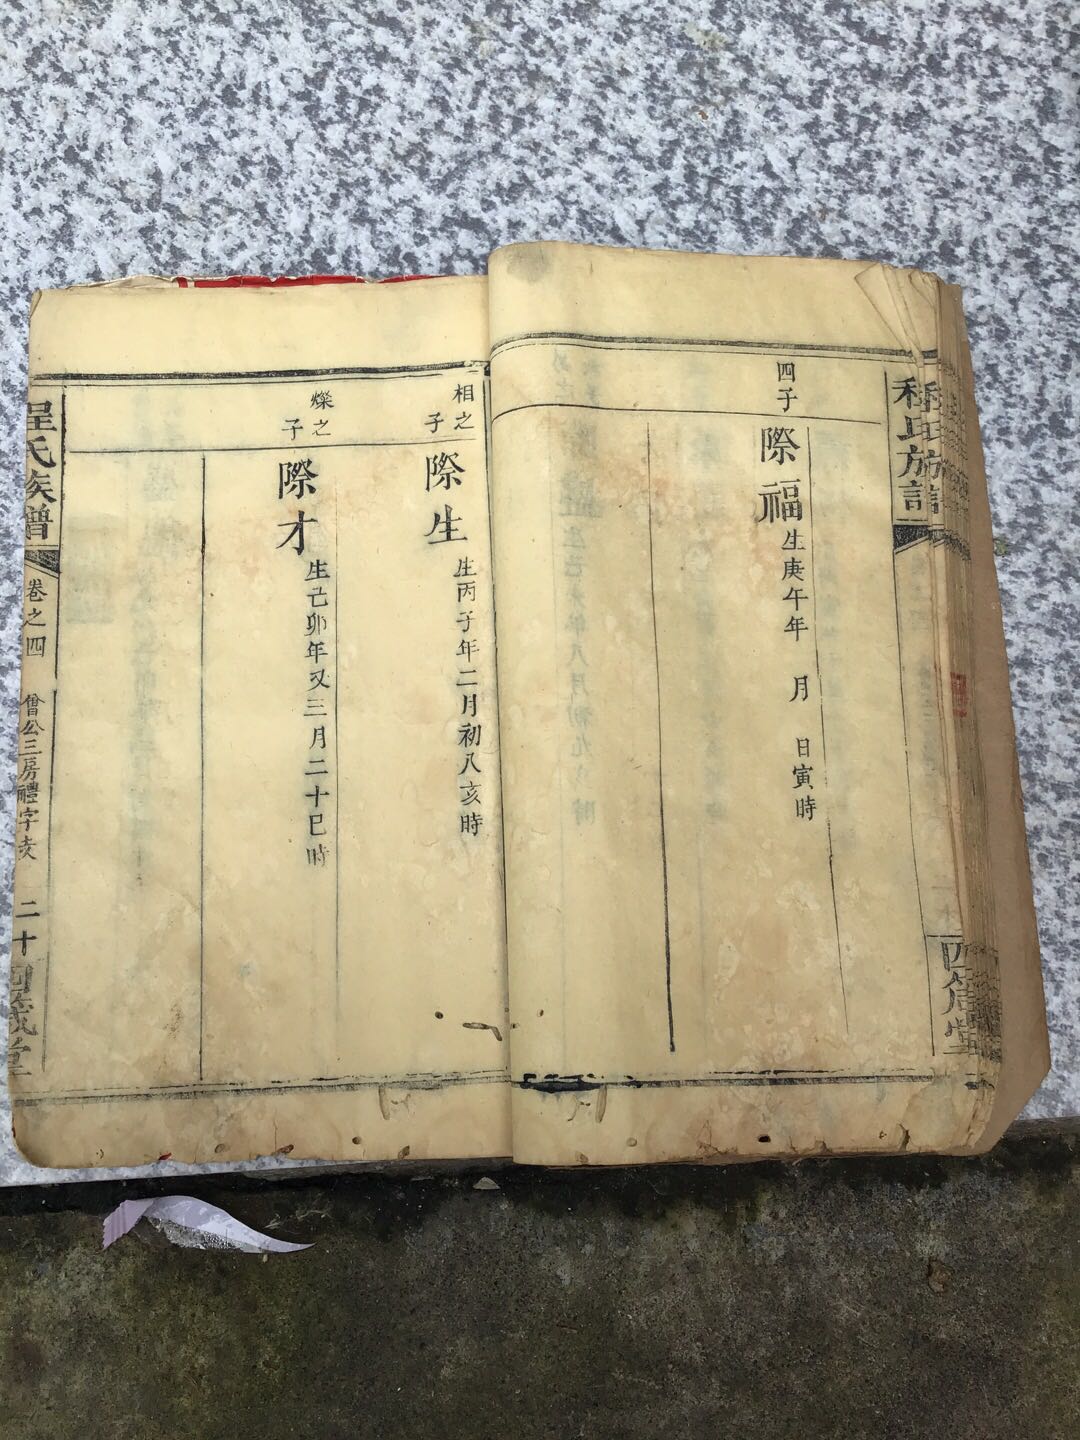 程氏族譜
四子
際福
生庚午年　月　日寅時
四箴堂
相之
子
際生
生丙子年二月初八亥時
爍之
子
際才
生己卯年又三月二十巳時
程氏族譜
卷之四
僧公三房禮字支
二十
四箴堂